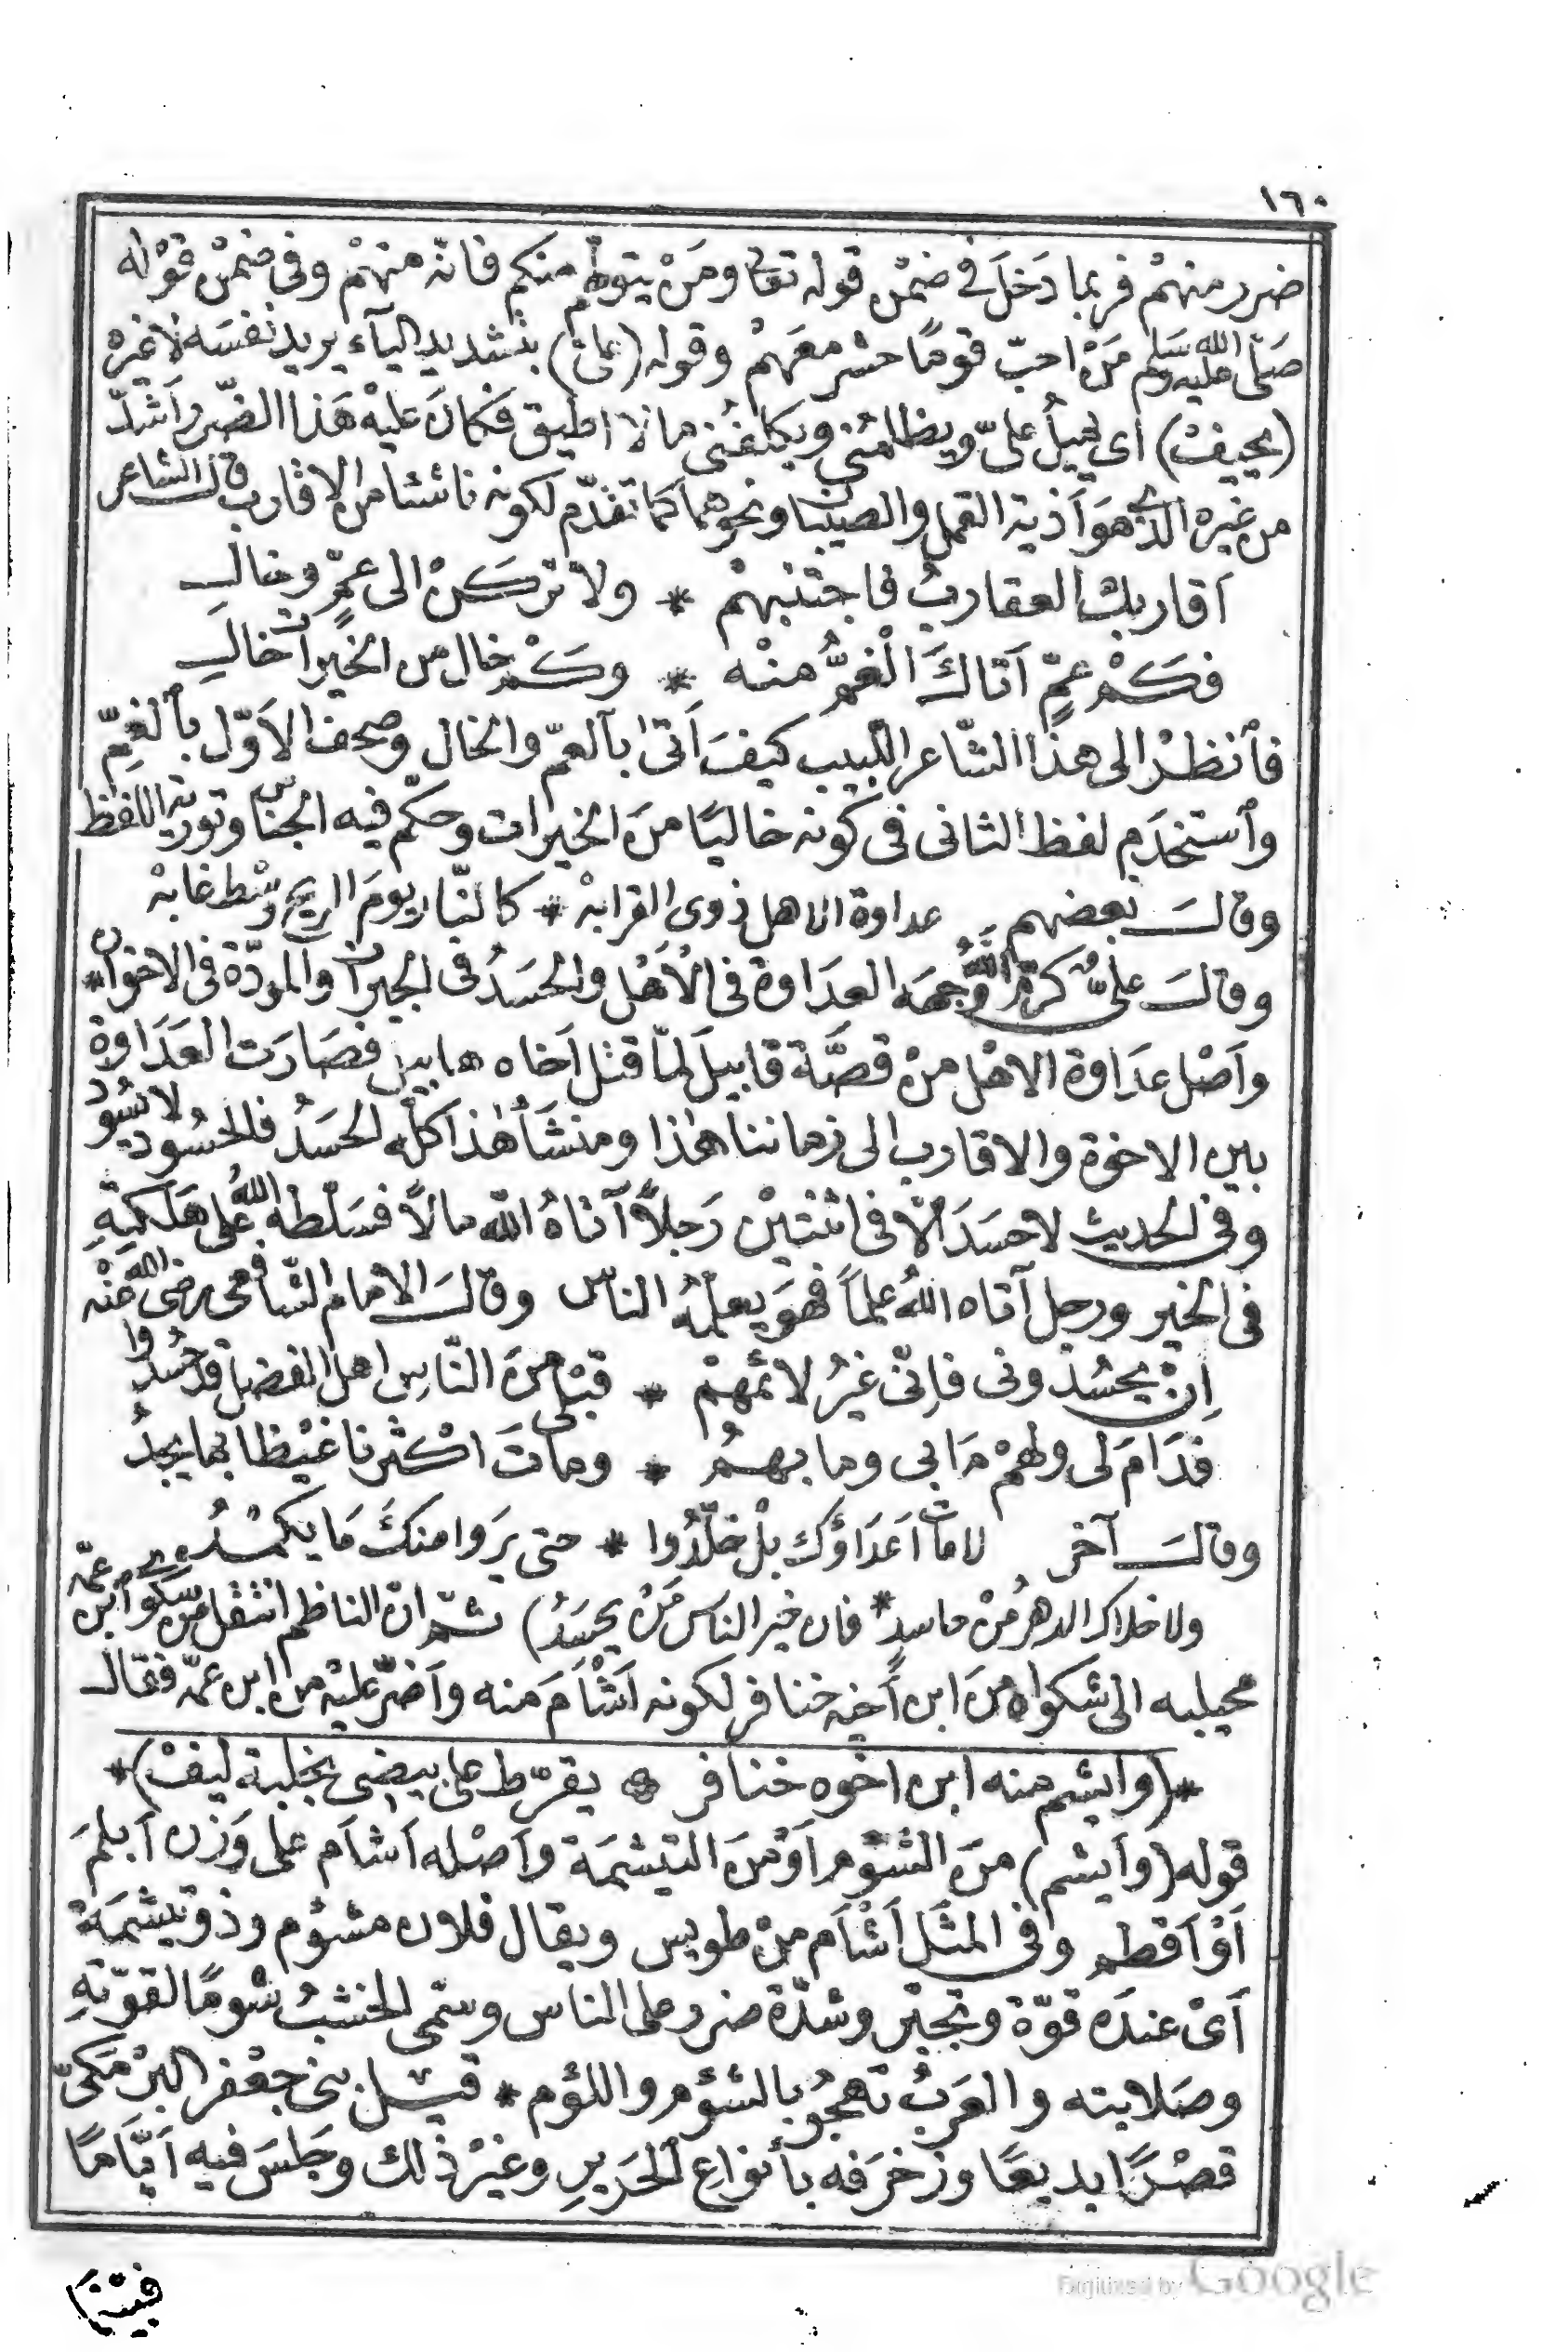 ١٦٠
ضرر منهمْ فربما دَخَلَ فى ضمْن قوله تعا ومَنْ يتولهم منكم فانّه منهمْ وفى ضمْن قوْله
صَلّى الله عليه وسَلم مَنْ احبّ قومًا حشر معَهمْ وقوله (علىّ) بتشديد اليآء يريد نفسَه لا غيره
(يحيفْ) اى يميلُ علىّ ويظلمُنى ويكلفُنى ما لا اطيق فكانَ عليْه هَذا الضّرر اَشدّ
من غيره الذى هوَ اَذية القمل والصيبان ونحوهما كما تقدّم لكونه ناشئا من الاقارب قال الشاعر
اَقاربك العقاربُ فاجتنبهمْ * ولا تركَنْ الى عمٍّ وخالِ
فكَمْ عمٍّ اَتاكَ الْغمُّ منْه * وكَمْ خال من الخيرات خالِ
فاَنظرْ الى هذا الشّاعر اللّبيب كيفَ اَتى باَلعمّ والخال وصحف الاَوّل باَلغمِّ
واَستخدَم لفظ الثانى فى كونه خاليًا منَ الخيرات وحكّم فيه الجناس وتورية اللفظ
وقالَ بعضهم عداوة الاهل ذوى القرابهْ * كالنّار يومَ الريح وسْط غابهْ
وقالَ علىّ كرّم اللهُ وجهَه العدَاوة فى الاَهْل والحسَدُ فى الجيران والمودّة فى الاخوان *
واَصْل عدَاوة الاهْل منْ قصَّة قابيلَ لمّا قتل اَخاه هابيل فصَارَت العَدَاوة
بين الاخوة والاقارب الى زماننا هٰذا ومنشَأ هٰذا كلّه الحسَدُ فالحسُود لا يسُود
وفى الحديث لا حسَدَ الّا فى اثنتيْن رَجلاً آتاهُ الله مالاً فسَلّطه اللهُ على هَلَكتهِ
فى الخير ورجل آتاه اللهُ علماً فهوَ يعلمُه الناس وقالَ الامام الشّافعى رضى الله عنْه
اِنْ يحسُدونى فاِنّى غيرُ لائمهمْ * قبْلى منَ النّاس اهل الفضل قد حُسدُوا
فدَامَ لى ولهمْ مَا بى وما بهمُ * وماتَ اكْثرنا غيْظا بما يجدُ
وقالَ آخر لا مات اَعدَاؤك بلْ خلّدُوا * حتى يرَوا منكَ مَا يكمُدُ
ولا خلاك الدهرُ منْ حاسد * فان خير الناس مَنْ يحسَدُ) ثمّ ان الناظم انتقل من شكوى اَبن عمّه
محيلبه الى شكواه منَ ابن اَخيه خنافر لكونه اَشْاَمَ منه واَضرّ عليْه من ابن عمّه فقال
*(وايشم منه ابن اخوه خنافر يقرّط على بيضى بخلبة ليفْ)*
قوله (واَيشم) منَ الشؤم اَوْ منَ التيشمَة واَصْله اَشاَم على وَزن اَبلمَ
اَوْ اَقطم وفى المثَل اَشْاَم منْ طويس ويقال فلان مشؤم وذو تيشمَة
اَىْ عندَه قوّة وتجبّر وشدّة ضرر على الناس وسمّى الخشبُ شومًا لقوّتهِ
وصَلابته والعَربُ تهجُو بالشؤم واللؤم * قيل بنى جعْفر البرْمَكىّ
قصْرًا بديعًا وزخرَفه بأنواعِ الحَريرِ وغيْر ذلك وجَلسَ فيه اَيّامًا
Digitized by Google